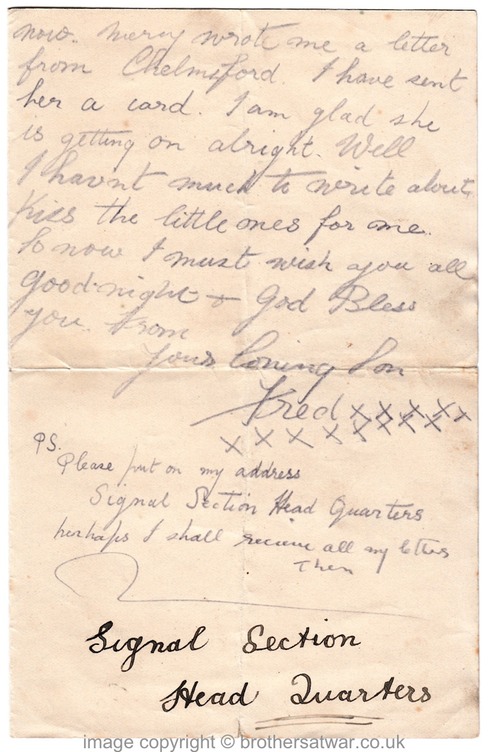 now. Mercy wrote me a letter
from Chelmsford. I have sent
her a card. I am glad she
is getting on alright. Well
I havnt much to write about,
Kiss the little ones for me.
So now I must wish you all
good-night & God Bless
you. from
Your loving Son
Fred x x x x x
x x x x x x x x
PS.
Please put on my address
Signal Section Head Quarters
perhaps I shall receive all my letters
then
Signal Section
Head Quarters
image copyright © brothersatwar.co.uk